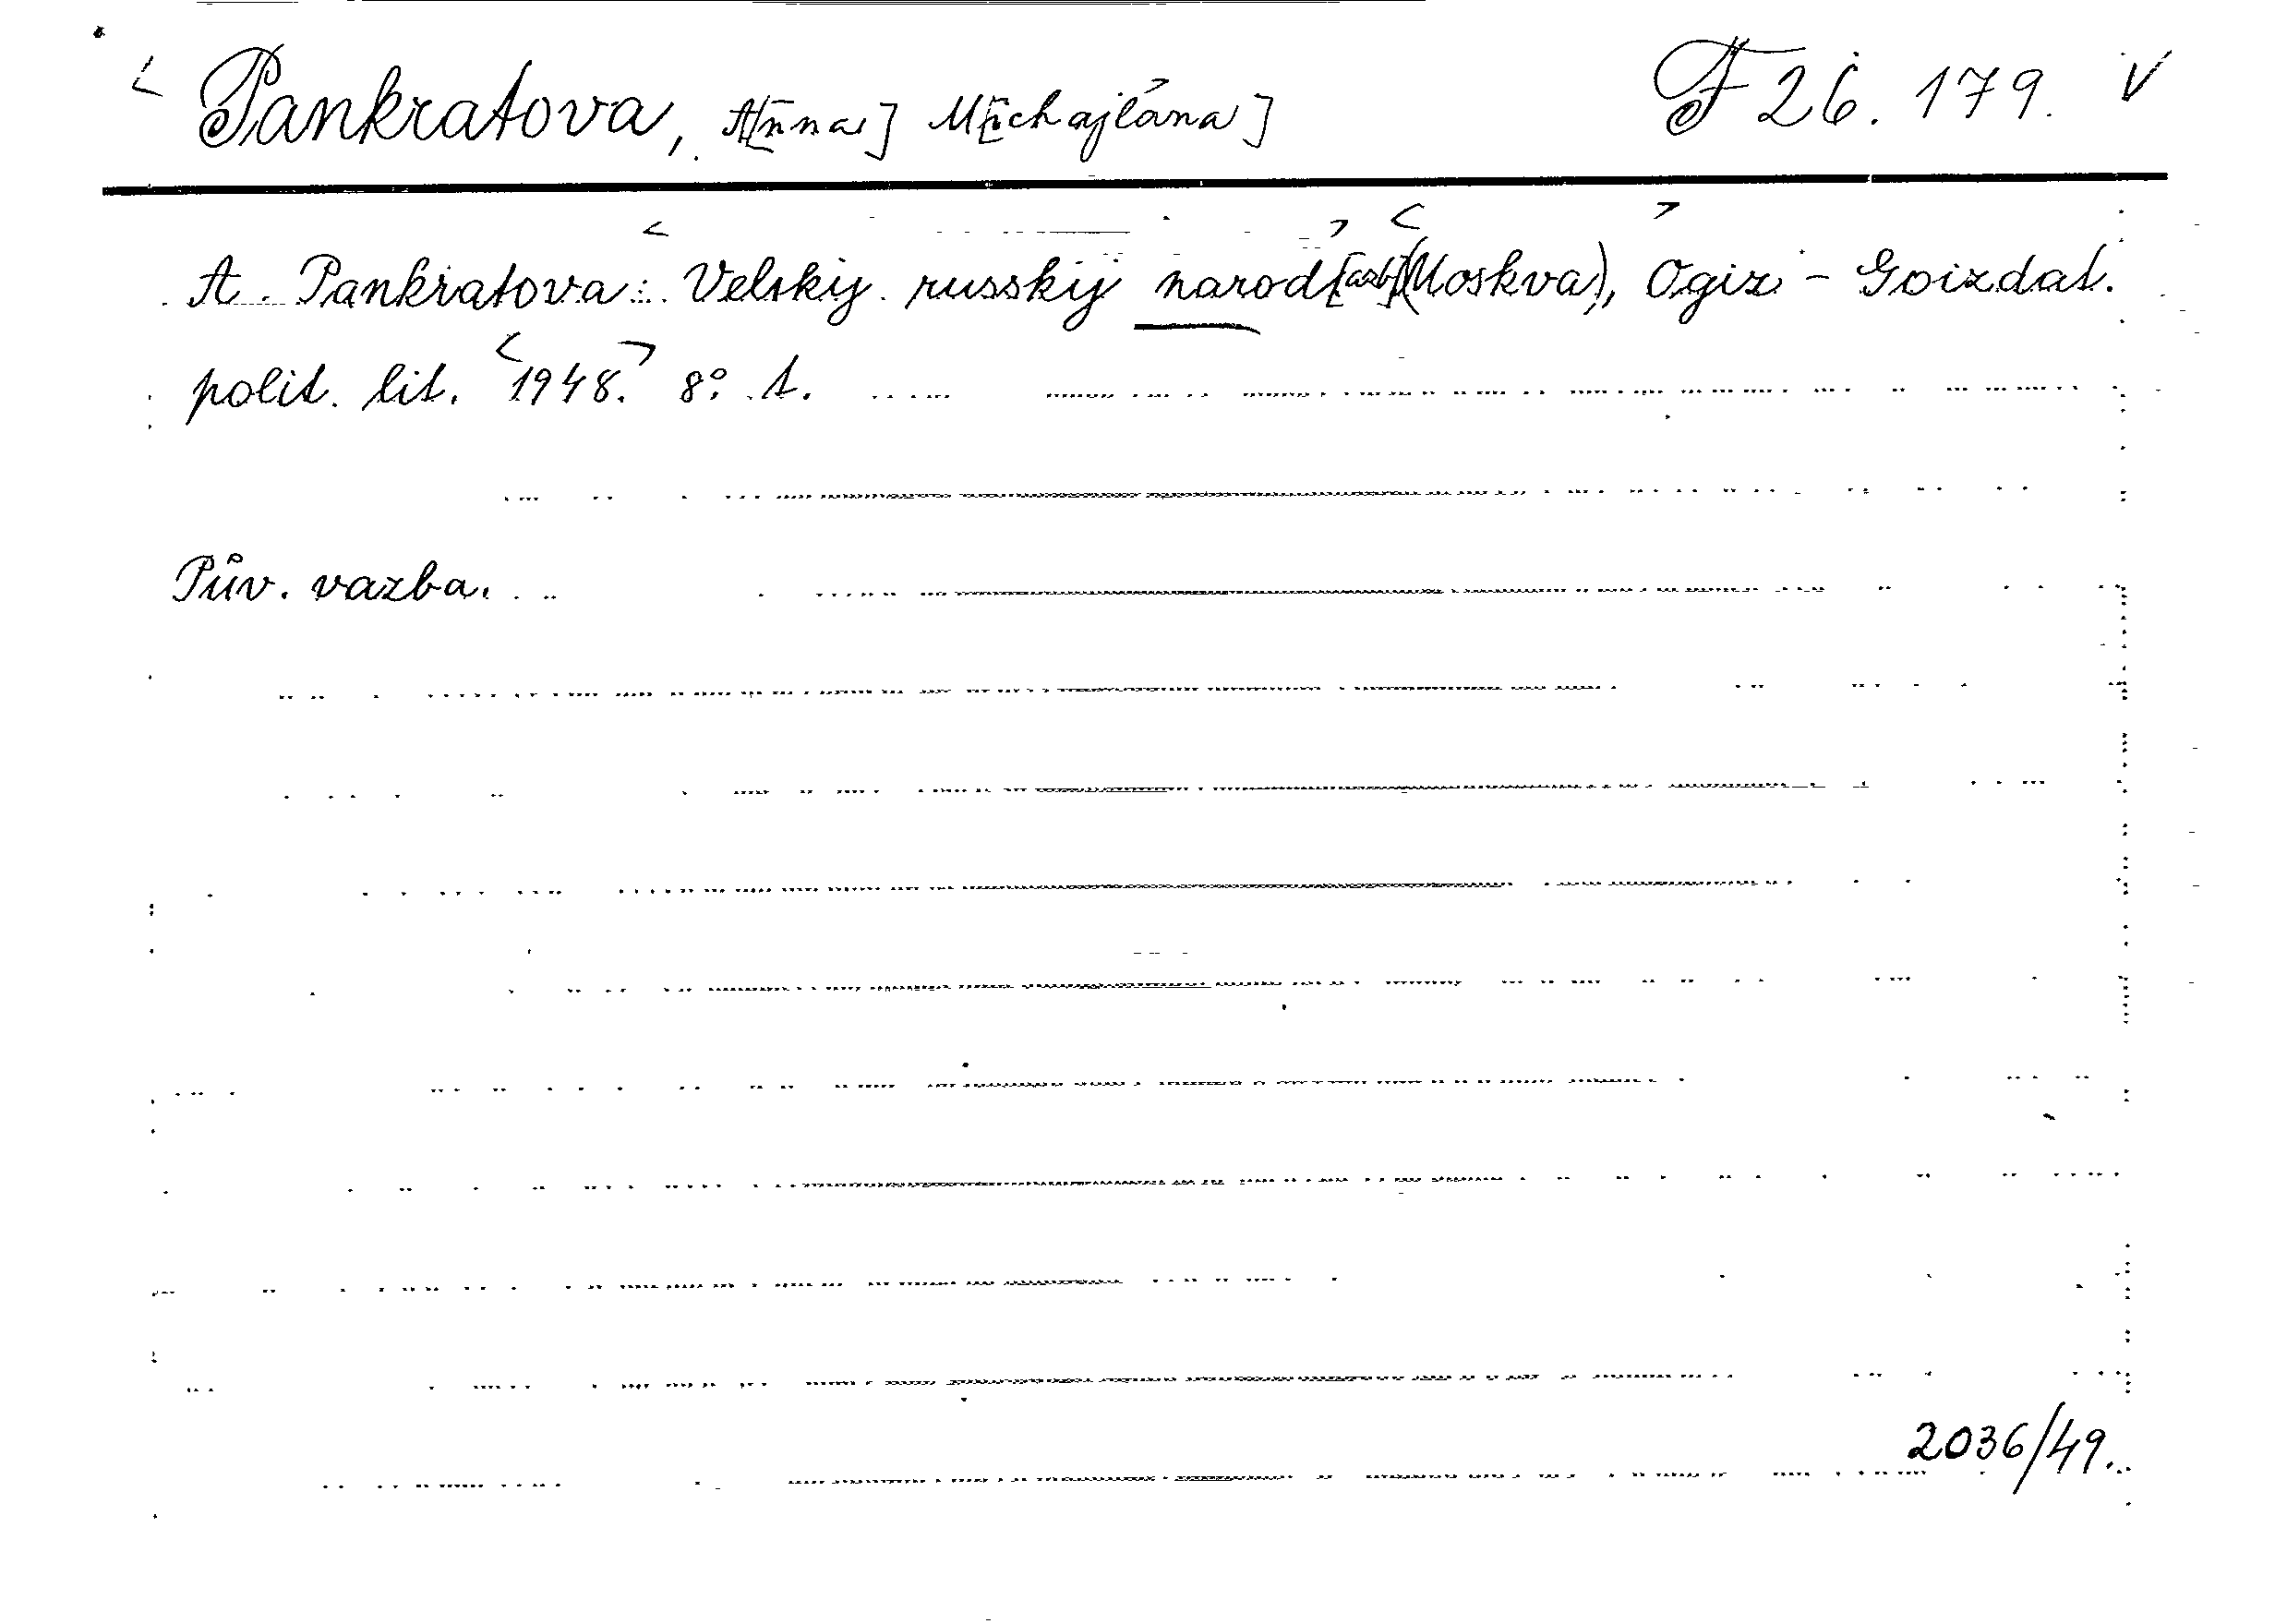 Pankratova, A[nna] M[ichajlovna] F 26.179. V
A. Pankratova: Velikij russkij narod [azb.] (Moskva), Ogiz - Goizdat.
polit. lit. 1948. 8°. t.
Pův. vazba.
2036/49.